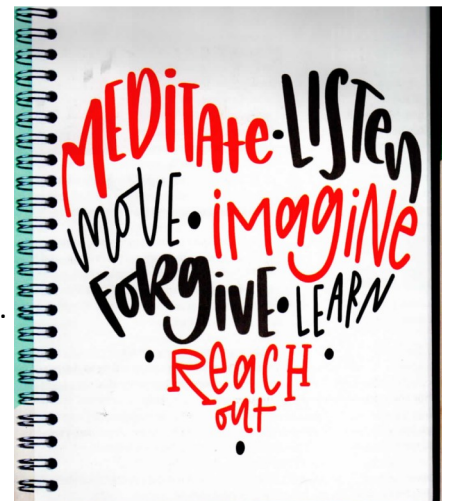 MEDITAte • LISTen
MOVE • iMagiNe
FORgivE • LEARN
• ReaCH •
out
•